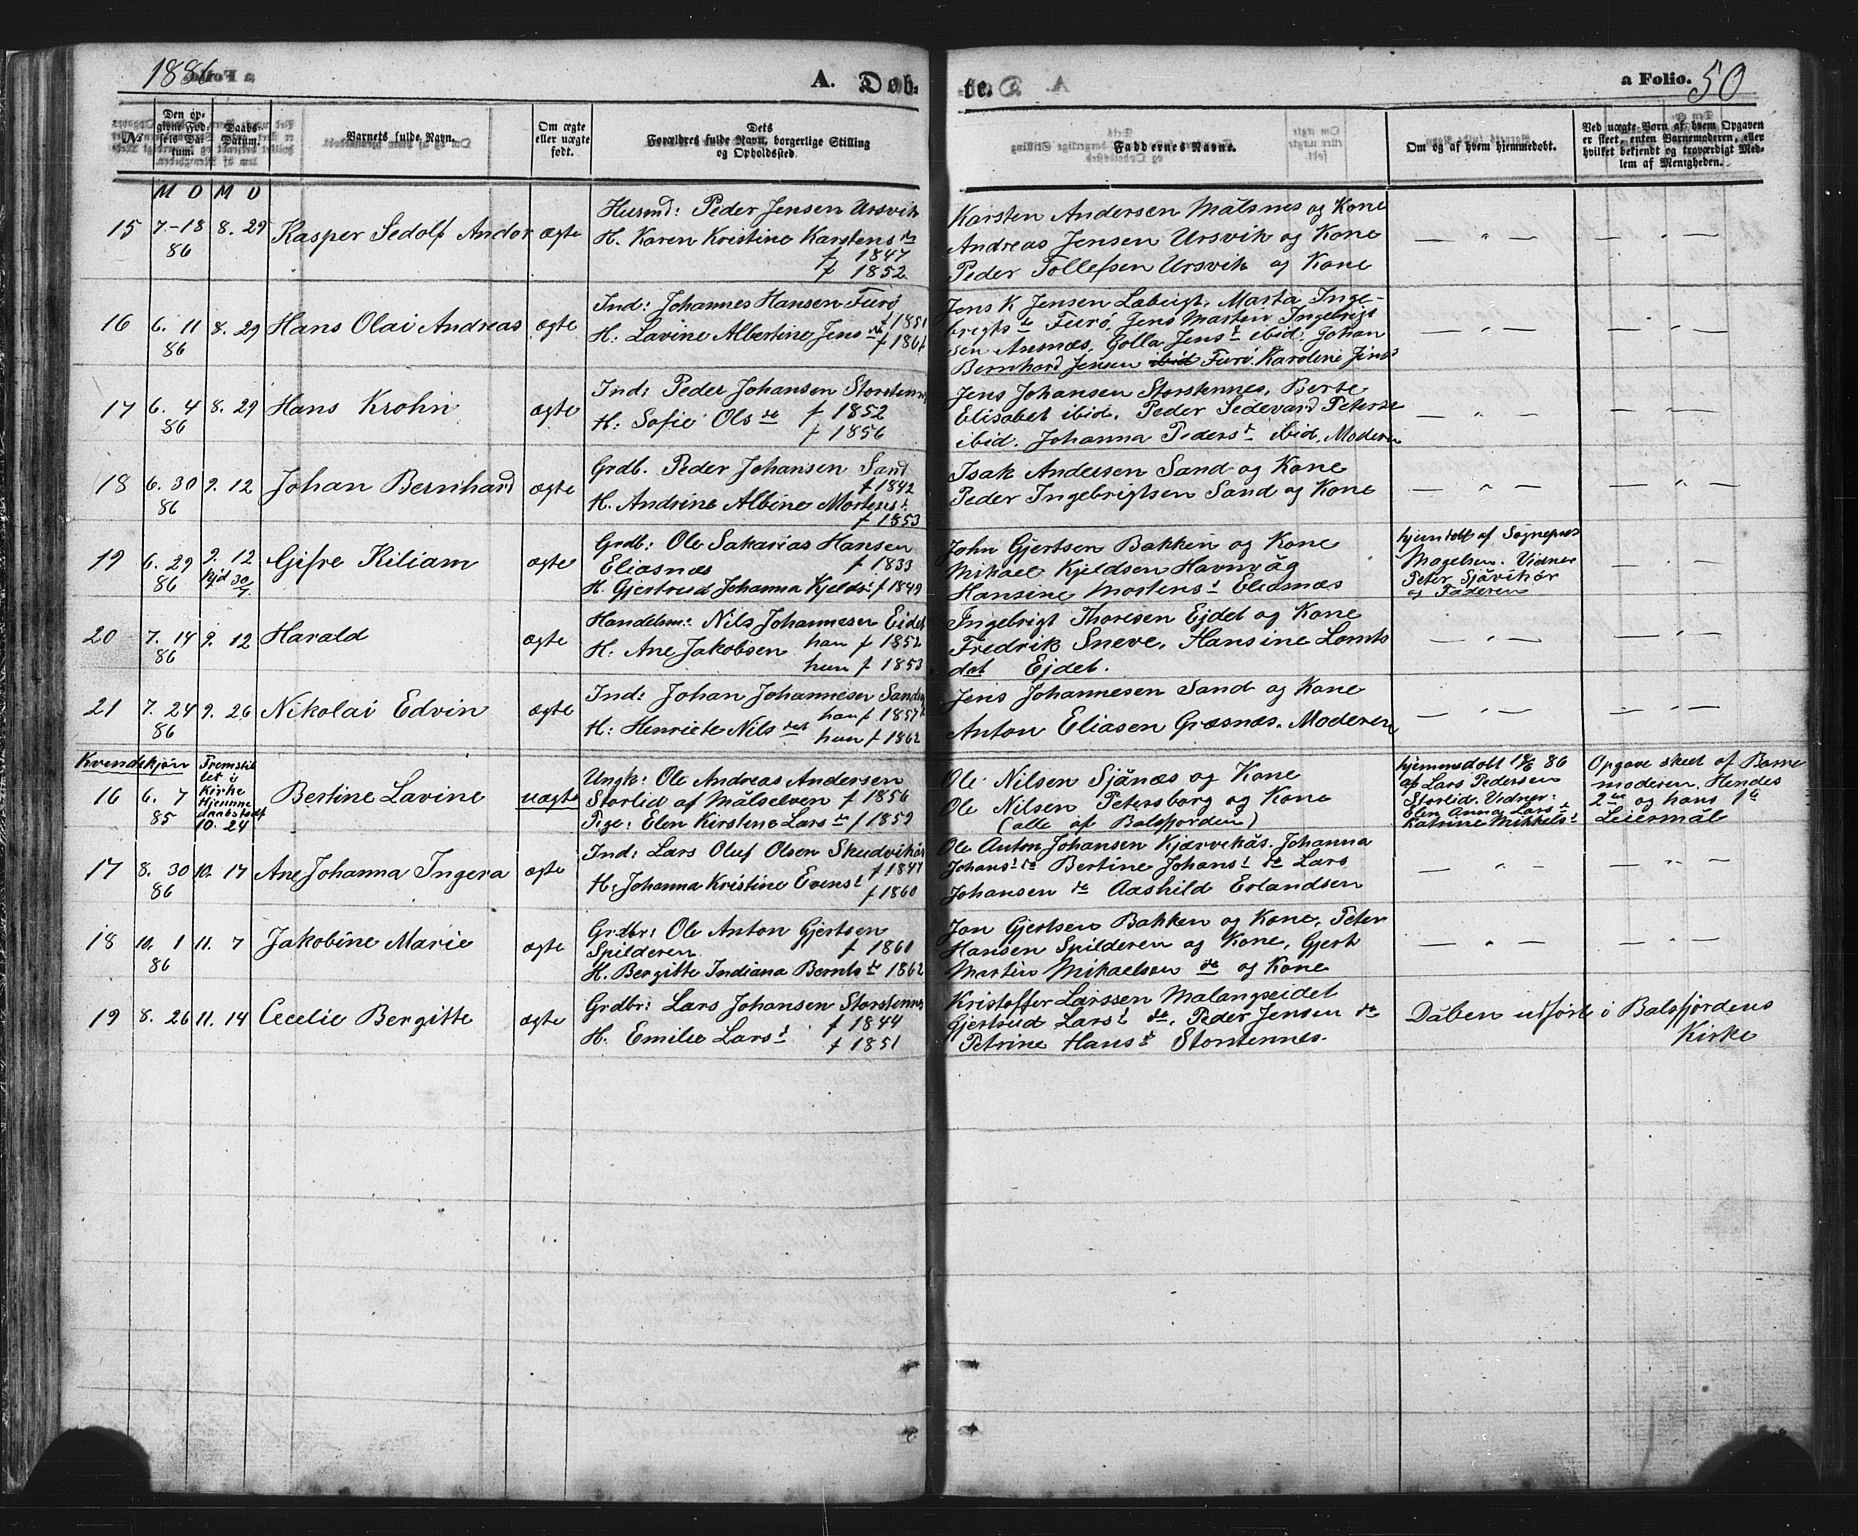 1886
A. Døb-
te.
a Folio. 50
No
Den opgivne Fødsels Datum.
Daabs-Datum.
Barnets fulde Navn.
Om ægte eller uægte født.
Dets Forældres fulde Navn, borgerlige Stilling og Opholdssted.
Faddernes Navne.
Om og af hvem hjemmedøbt.
Ved uægte Børn af hvem Opgaven er skeet, enten Barnemoderen, eller hvilket bekjendt og troværdigt Medlem af Menigheden.
M D M D
15 7-18 86 8. 29 Kasper Sedolf Andor ægte
Husmd: Peder Jensen Ursvik
H. Karen Kristine Karstens de
f 1847
f 1852
Karsten Andersen Målsnes og Kone
Andreas Jensen Ursvik og Kone
Peder Tollefsen Ursvik og Kone
— " — — " —
16 6. 11 86 8. 29 Hans Olai Andreas ægte
Ind: Johannes Hansen Furø
f 1851
H: Lavine Albertine Jens de f 1861
Jens K Jensen Labeigt, Marta Inge-
brigts de Furø, Jens Marten Ingebrigt
sen Ansnæs, Golla Jens d ibid, Johan
Bernhard Jensen ibid Furø. Karoline Jens d
— " — — " —
17 6. 4 86 8. 29 Hans Krohn ægte
Ind: Peder Johansen Storstennes
H: Sofie Ols de f 1852
f 1856
Jens Johansen Storstennes, Berte
Elisabet ibid, Peder Sedevard Peterse
ibid. Johanna Peders d ibid, Moderen
— " — — " —
18 6. 30 86 9. 12 Johan Bernhard ægte
Grdb. Peder Johansen Sand
f 1842
H. Andrine Albine Mortens d
f 1853
Isak Andersen Sand og Kone
Peder Ingebrigtsen Sand og Kone
— " — — " —
19 6. 29 86 9. 12 hjd 30/7 Gifre Kiliam ægte
Grdb: Ole Sakarias Hansen
Eliasnæs f 1833
H. Gjertrud Johanna Kjelds d f 1849
John Gjertsen Bakken og Kone
Mikael Kjeldsen Havnvåg
Hansine Mortens d Eliasnæs
hjemdøbt af Sognepr
Magelsen. Vidner
Peter Sjåvikør
og Faderen
— " —
20 7. 14 86 9. 12 Harald ægte
Handelsm: Nils Johannesen Eidet
H. Ane Jakobsen han f 1852
hun f 1853
Ingebrigt Thoresen Ejdet og Kone
Fredrik Sneve, Hansine Lornts
dat Ejdet.
— " — — " —
21 7. 24 86 9. 26 Nikolai Edvin ægte
Ind: Johan Johannesen Sand
han f 1857
H: Henriete Nils dat hun f 1862
Jens Johannesen Sand og Kone
Anton Eliasen Græsnæs. Moderen
— " — — " —
Kvindekjøn
16 6. 7 85 Fremstil
let i
Kirke
Hjemme
daabstadf
10. 24 Bertine Lavine uægte
Ungk: Ole Andreas Andersen
Storlid af Målselven f 1856
Pige: Elen Kirstine Lars de f 1859
Ole Nilsen Sjånæs og Kone
Ole Nilsen Petersborg og Kone
(alle af Balsfjorden)
hjemmedøbt 86
af Lars Pedersen
Storlid. Vidner:
Elen Anna Lars d
Katrine Mikkels d
Opgave skeet af Barne
moderen. Hendes
2det og hans 1ste
Leiermål
17 8. 30 86 10. 17 Ane Johanna Ingera ægte
Ind: Lars Oluf Olsen Skudvikås
f 1847
H: Johanna Kristine Evens d
f 1860
Ole Anton Johansen Kjærvikås. Johanna
Johans d do Bertine Johans d do Lars
Johansen do Aashild Erlandsen
— " — — " —
18 10. 1 86 11. 7 Jakobine Marie ægte
Grdbr: Ole Anton Gjertsen
Spilderen f 1861
H. Bergitte Indiana Bernts de 1862
Jon Gjertsen Bakken og Kone, Peter
Hansen Spilderen og Kone, Gjert
Martin Mikaelsen do og Kone
— " — — " —
19 8. 26 11. 14 Cecelie Bergitte ægte
Grdbr: Lars Johansen Storstennes
f 1844
H. Emilie Lars d f 1851
Kristoffer Larssen Malangseidet
Gjertrud Lars d do, Peder Jensen do
Petrine Hans d Storstennes.
Dåben udført i Balsfjordens
Kirke